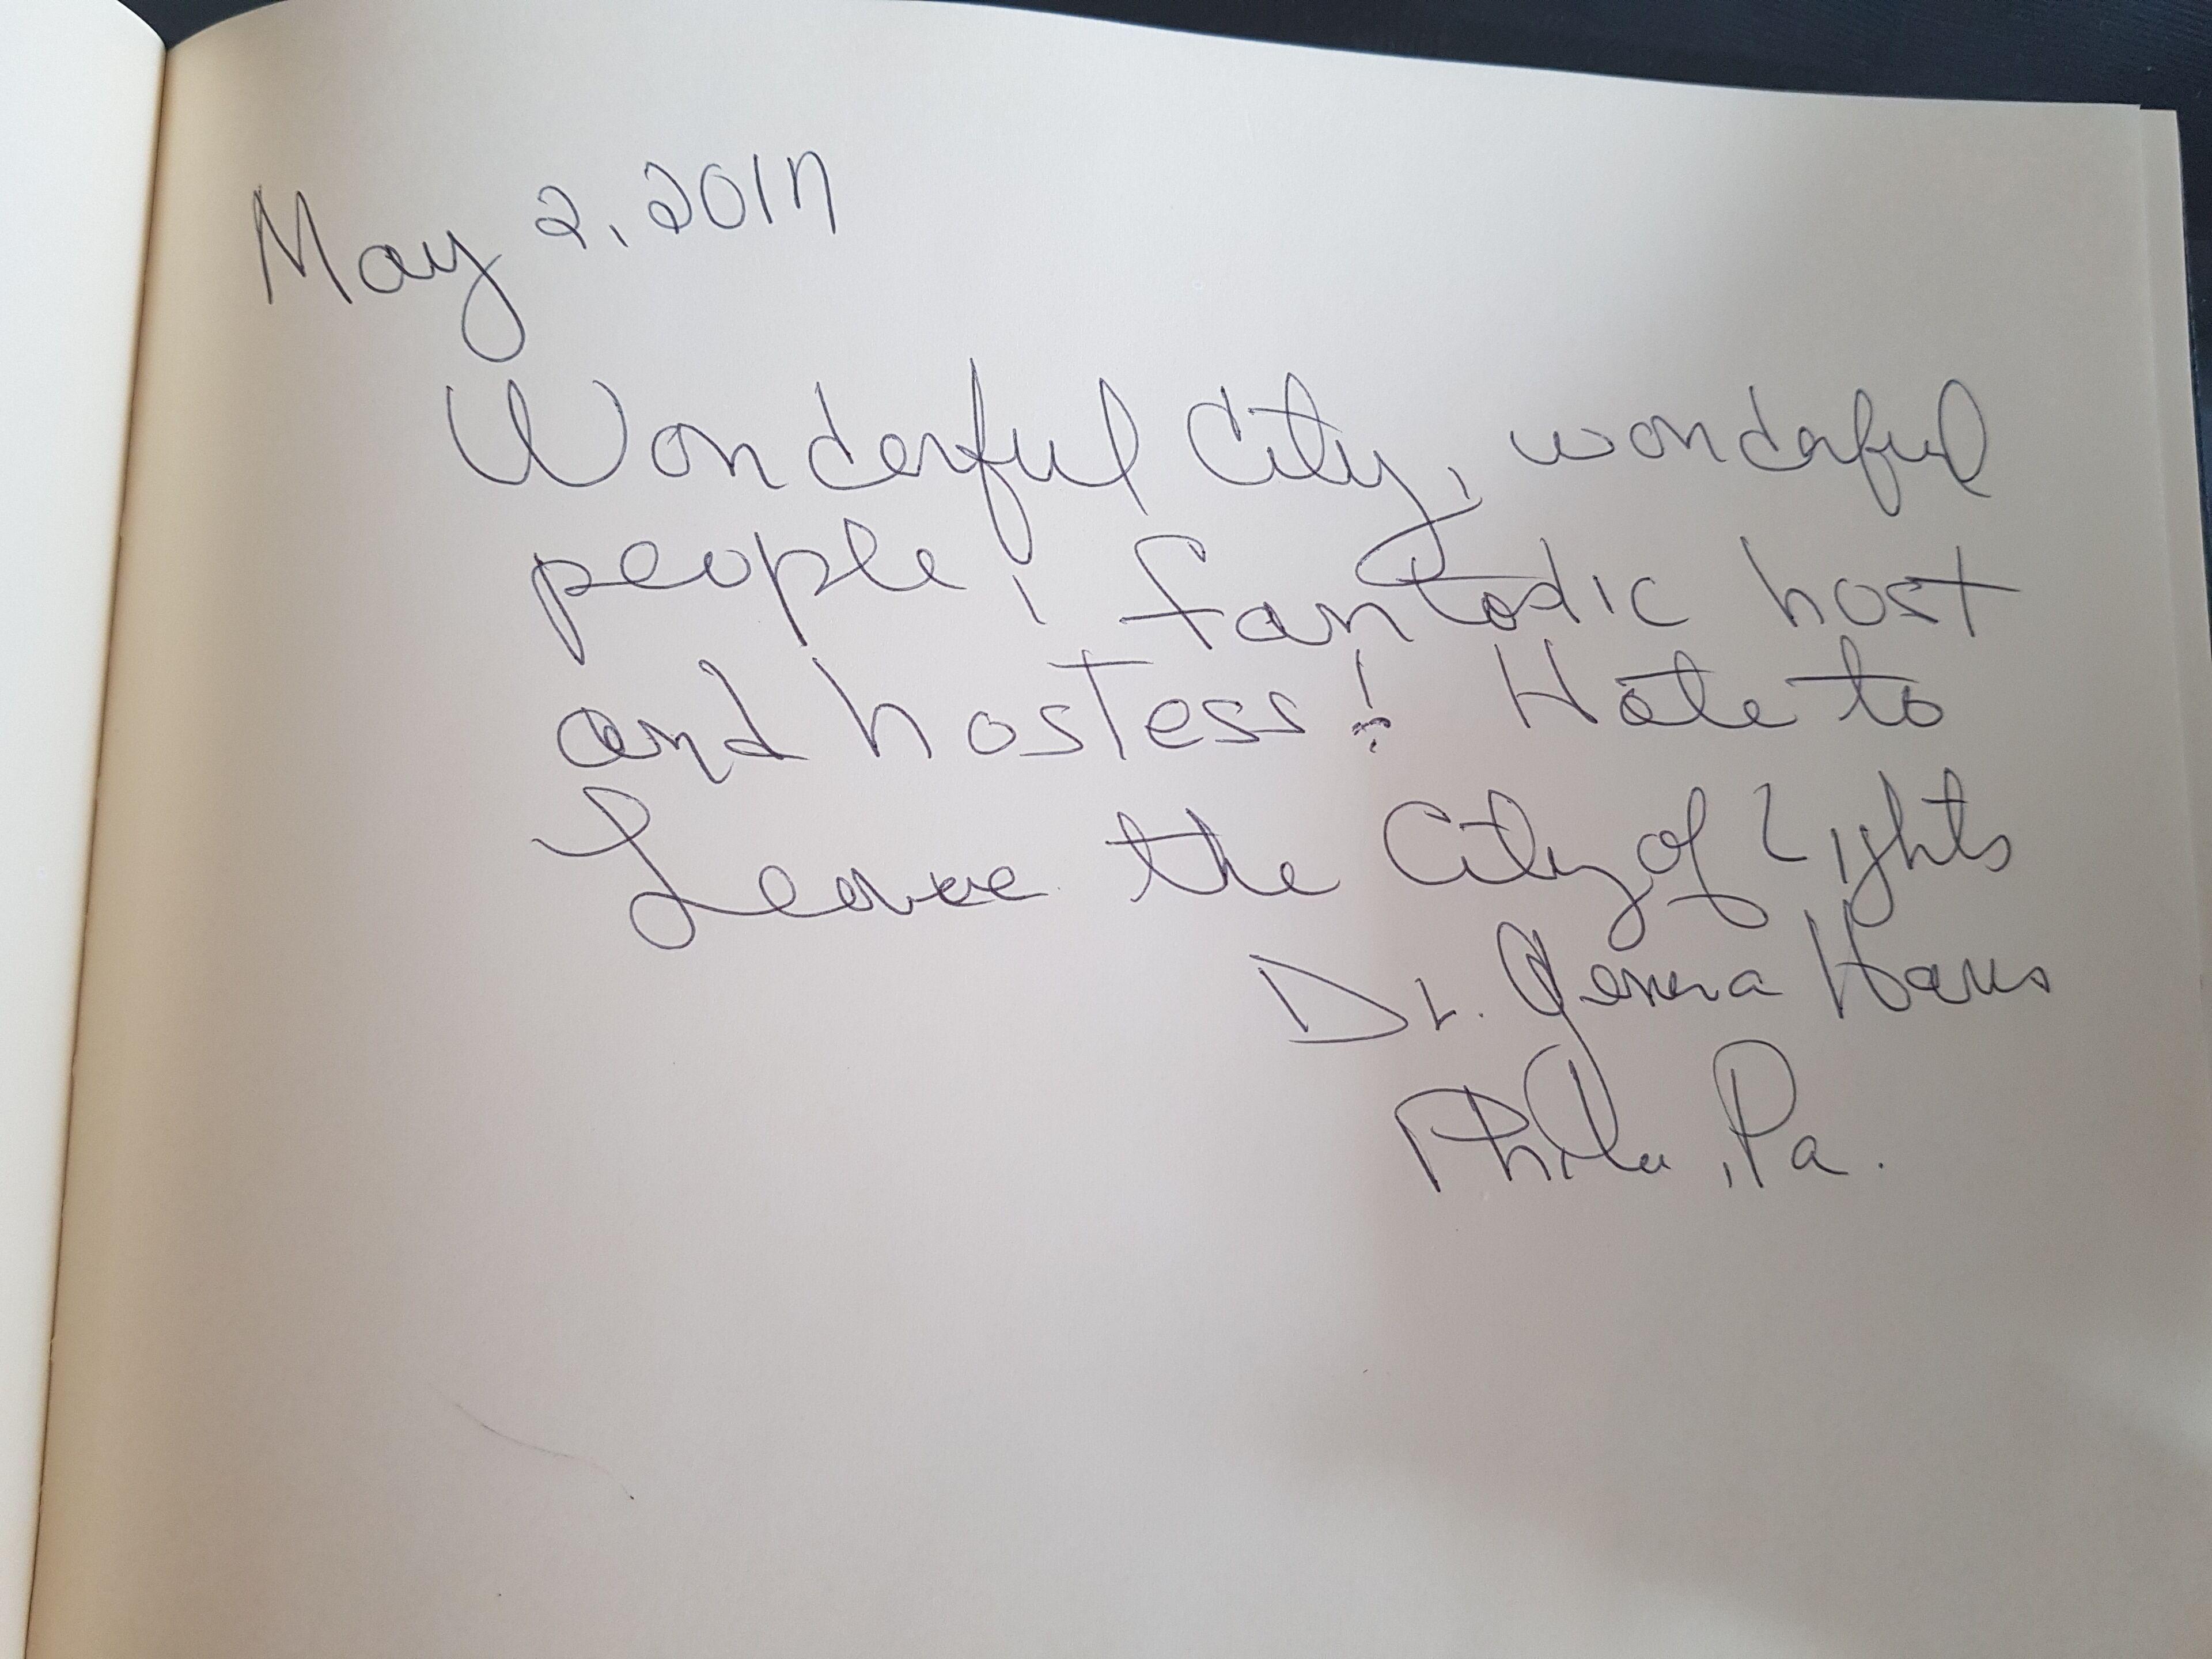 May 2, 2017
Wonderful City, wonderful
people, fantastic host
and hostess! Hate to
Leave the City of Lights
Dr.
Phila, Pa.